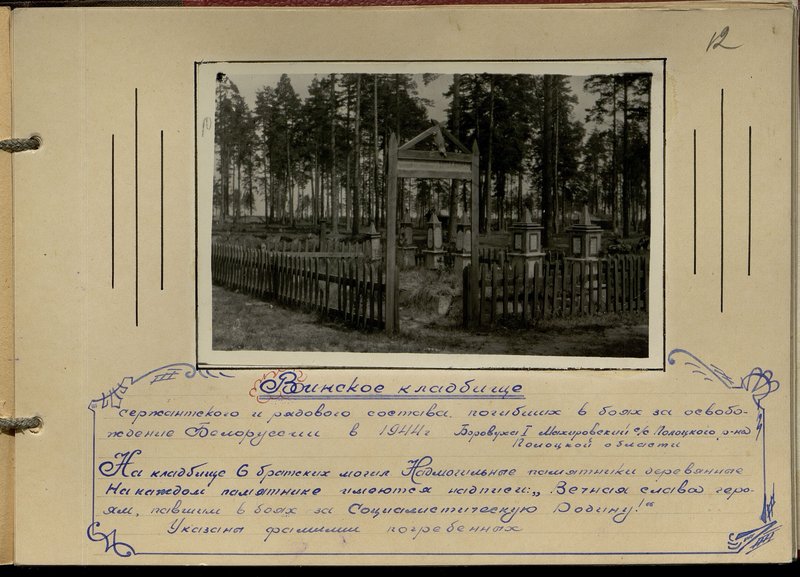 12
Воинское кладбище
сержантского и рядового состава, погибших в боях за освобо-
ждение Белоруссии в 1944г Боровуха I Махировский с/с Полоцкого р-на
Полоцкой области
На кладбище 6 братских могил Надмогильные памятники деревянные
На каждом памятнике имеются надписи: „Вечная слава геро-
ям, павшим в боях за Социалистическую Родину!“
Указаны фамилии погребенных